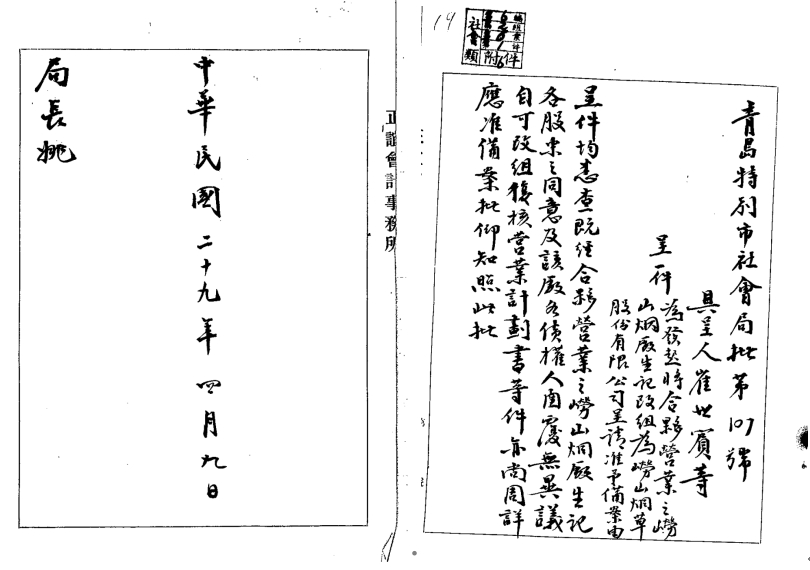 14
社會類
附件
青島特別市社會局批第107號
具呈人崔世賓等
呈一件為發起將合夥營業之嶗
山烟廠生記改組為嶗山烟草
股份有限公司呈請准予備案由
呈件均悉查既經合夥營業之嶗山烟廠生記
各股東之同意及該廠各債權人函覆無異議
自可改組復核營業計劃書等件亦尚周詳
應准備案批仰知照此批
正誼會計事務所
中華民國二十九年四月九日
局長姚